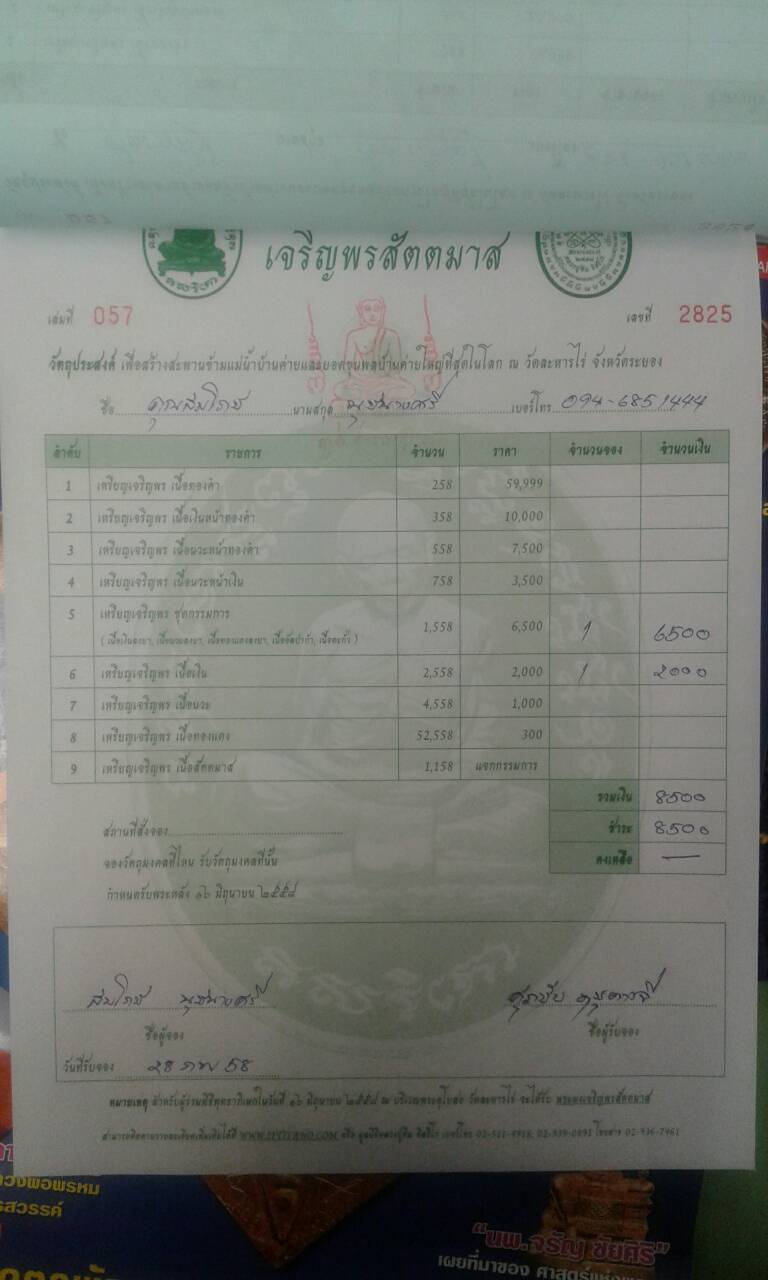 เจริญพรสัตตมาส
เล่มที่ 057 เลขที่ 2825
วัตถุประสงค์ เพื่อสร้างสะพานข้ามแม่น้ำบ้านค่ายและยอดขุนพลบ้านค่ายใหญ่ที่สุดในโลก ณ วัดละหารไร่ จังหวัดระยอง
ชื่อ คุณสมโภช นามสกุล เบอร์โทร 094-6851444
ลำดับ รายการ จำนวน ราคา จำนวนจอง จำนวนเงิน
1 เหรียญเจริญพร เนื้อทองคำ 258 59,999
2 เหรียญเจริญพร เนื้อเงินหน้าทองคำ 358 10,000
3 เหรียญเจริญพร เนื้อนวะหน้าทองคำ 558 7,500
4 เหรียญเจริญพร เนื้อนวะหน้าเงิน 758 3,500
5 เหรียญเจริญพร ชุดกรรมการ 1,558 6,500 1 6500
( เนื้อเงินลงยา, เนื้อนวะลงยา, เนื้อทองแดงลงยา, เนื้ออัลปาก้า, เนื้อตะกั่ว )
6 เหรียญเจริญพร เนื้อเงิน 2,558 2,000 1 2000
7 เหรียญเจริญพร เนื้อนวะ 4,558 1,000
8 เหรียญเจริญพร เนื้อทองแดง 52,558 300
9 เหรียญเจริญพร เนื้อสัตตมาส 1,158 แจกกรรมการ
รวมเงิน 8500
สถานที่สั่งจอง ชำระ 8500
จองวัตถุมงคลที่ไหน รับวัตถุมงคลที่นั้น คงเหลือ —
กำหนดรับพระหลัง ๑๖ มิถุนายน ๒๕๕๘
สมโภช
ชื่อผู้จอง ชื่อผู้รับจอง
วันที่รับจอง 28 กพ 58
หมายเหตุ สำหรับผู้ร่วมพิธีพุทธาภิเษกในวันที่ ๑๖ มิถุนายน ๒๕๕๘ ณ บริเวณพระอุโบสถ วัดละหารไร่ จะได้รับ พระผงเจริญพรสัตตมาส
สามารถติดตามรายละเอียดเพิ่มเติมได้ที่
วงพ่อพรหม
รสวรรค์
“นพ.จรัญ ชัยศิริ”
เผยที่มาของ ศาสตร์แห่ง